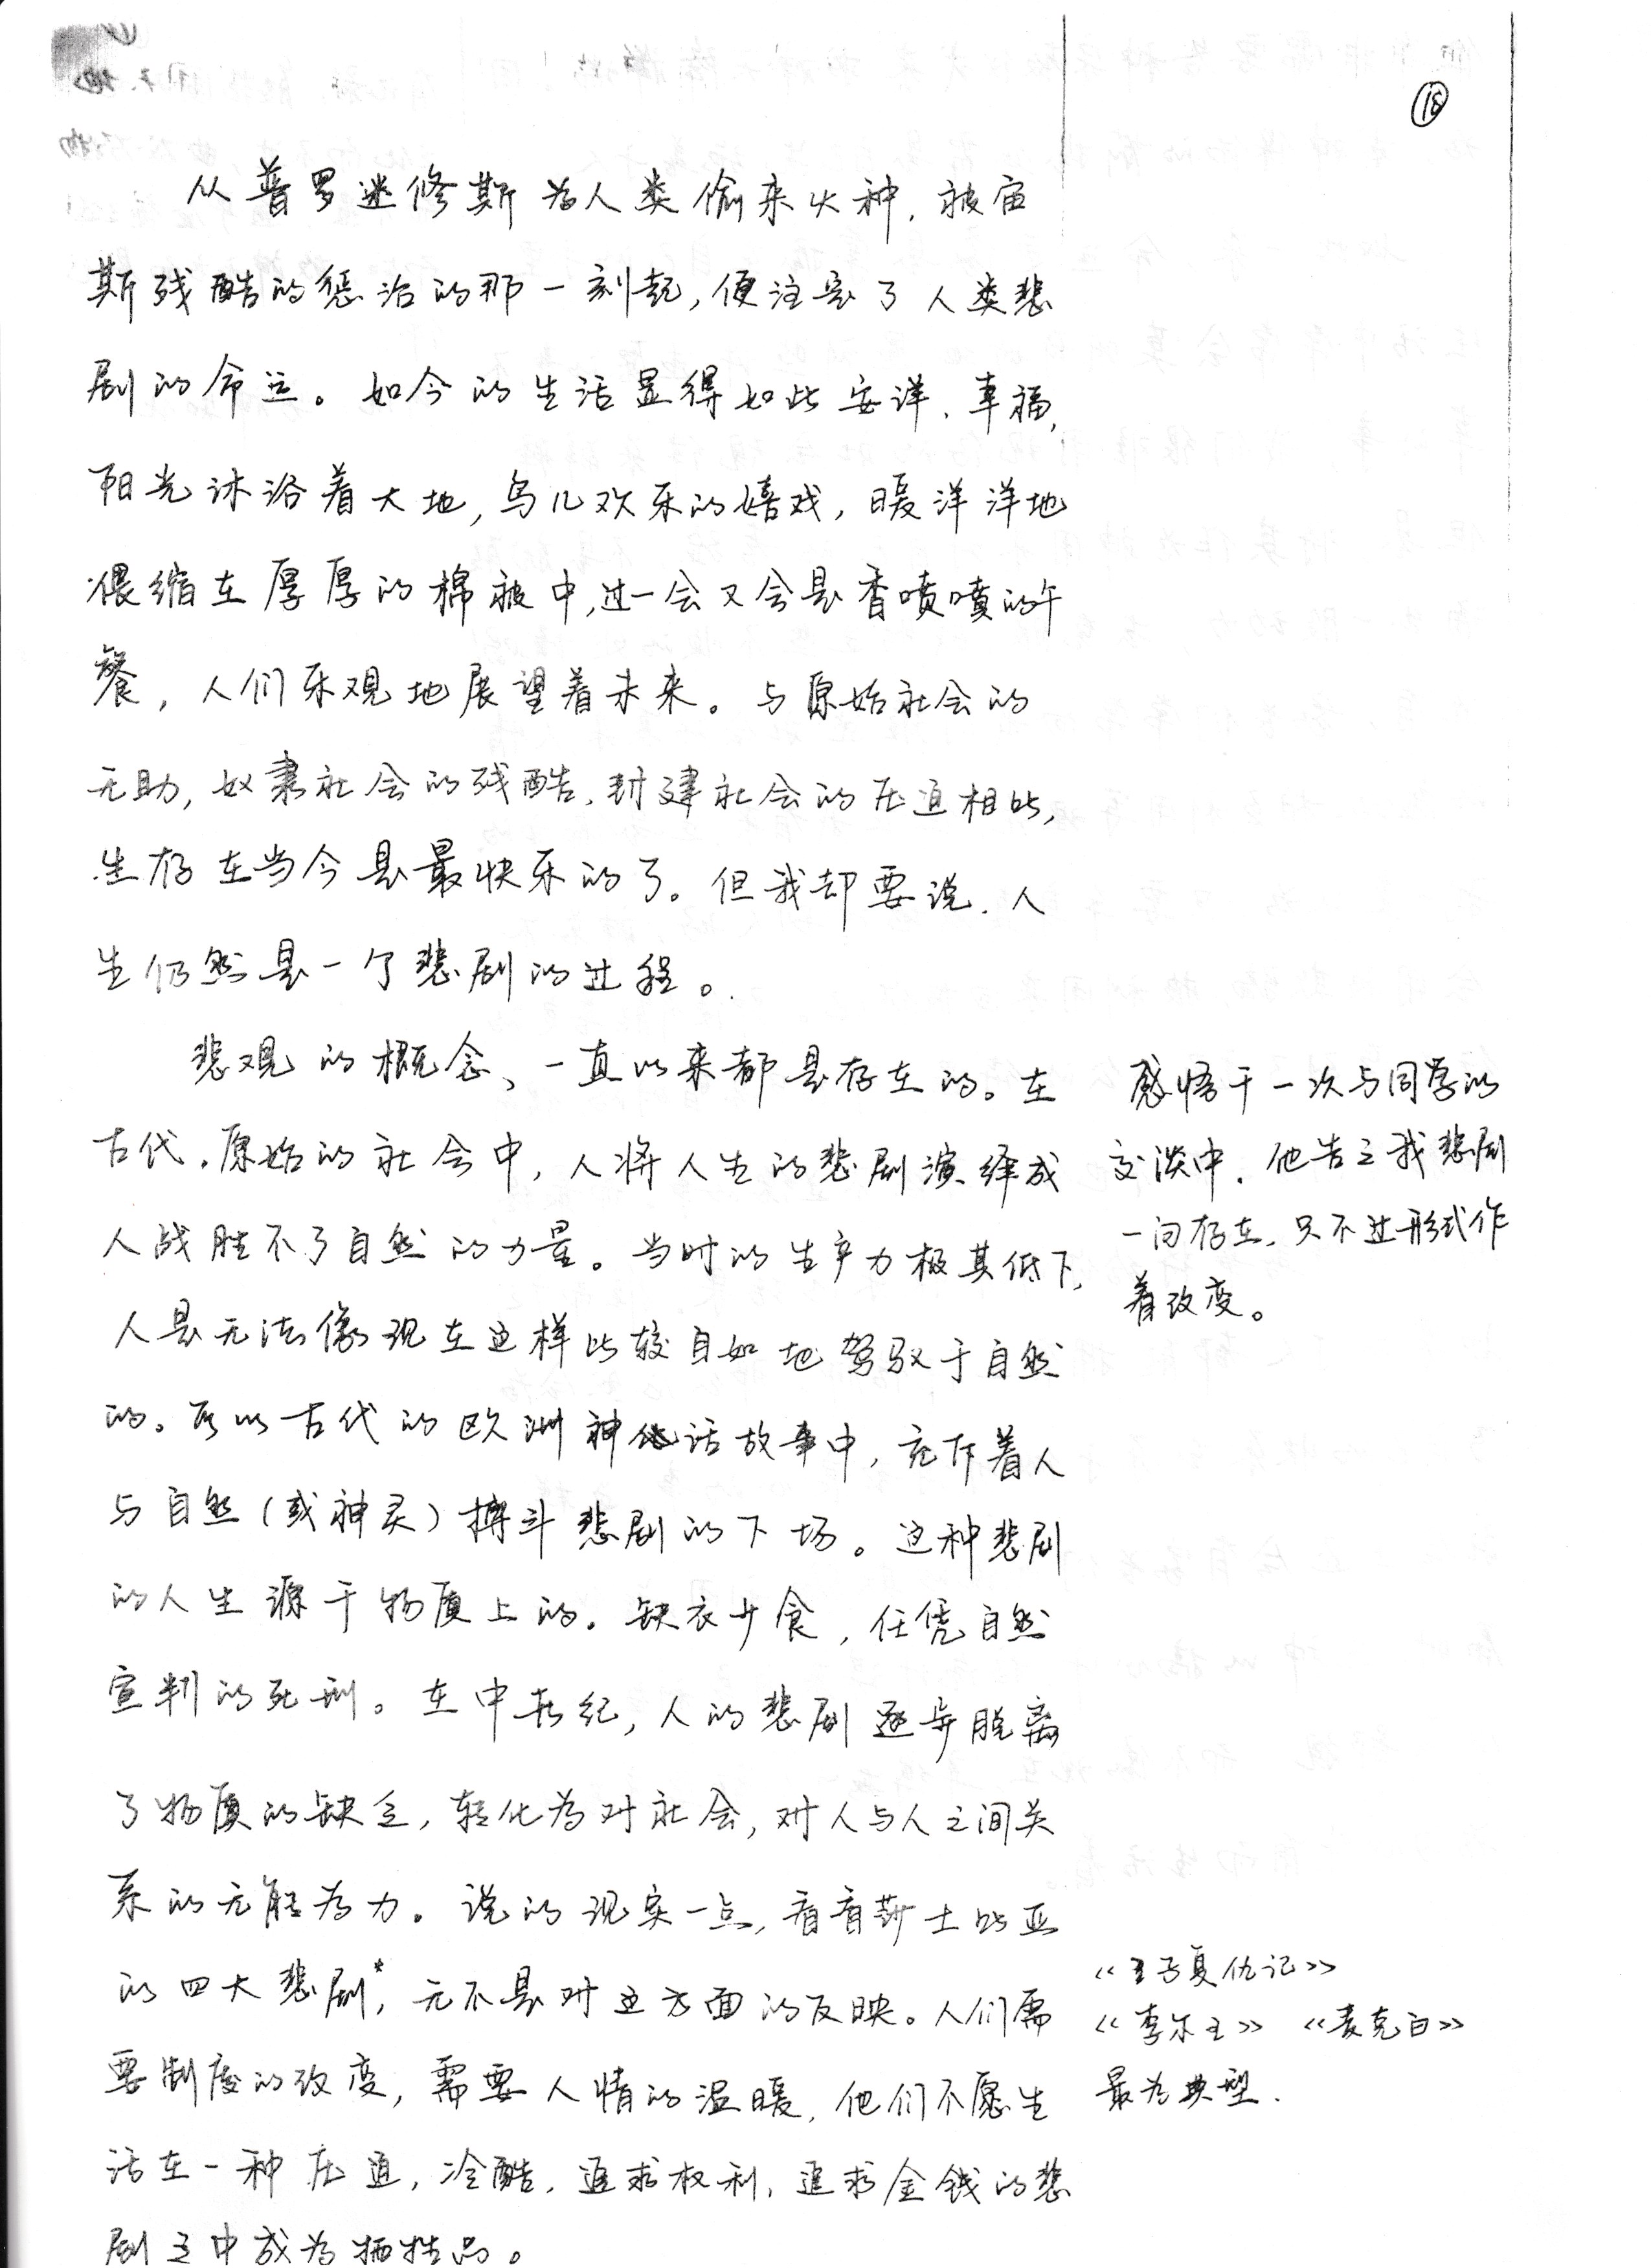 ⑱
从普罗迷修斯为人类偷来火种，被宙
斯残酷的惩治的那一刻起，便注定了人类悲
剧的命运。如今的生活显得如此安详、幸福，
阳光沐浴着大地，鸟儿欢乐的嬉戏，暖洋洋地
偎缩在厚厚的棉被中，过一会又会是香喷喷的午
餐，人们乐观地展望着未来。与原始社会的
无助，奴隶社会的残酷，封建社会的压迫相比，
生存在当今是最快乐的了。但我却要说，人
生仍然是一个悲剧的过程。
悲观的概念、一直以来都是存在的。在
古代，原始的社会中，人将人生的悲剧演绎成
人战胜不了自然的力量。当时的生产力极其低下，
人是无法像现在这样比较自如地驾驭于自然
的。所以古代的欧洲神话故事中，充斥着人
与自然（或神灵）搏斗悲剧的下场。这种悲剧
的人生源于物质上的。缺衣少食，任凭自然
宣判的死刑。在中世纪，人的悲剧逐步脱离
了物质的缺乏，转化为对社会，对人与人之间关
系的无能为力。说的现实一点，看看莎士比亚
的四大悲剧*，无不是对这方面的反映。人们需
要制度的改变，需要人情的温暖，他们不愿生
活在一种压迫，冷酷，追求权利，追求金钱的悲
剧之中成为牺牲品。
感悟于一次与同学的
交谈中，他告之我悲剧
一向存在，只不过形式作
着改变。
《王子复仇记》
《李尔王》 《麦克白》
最为典型.